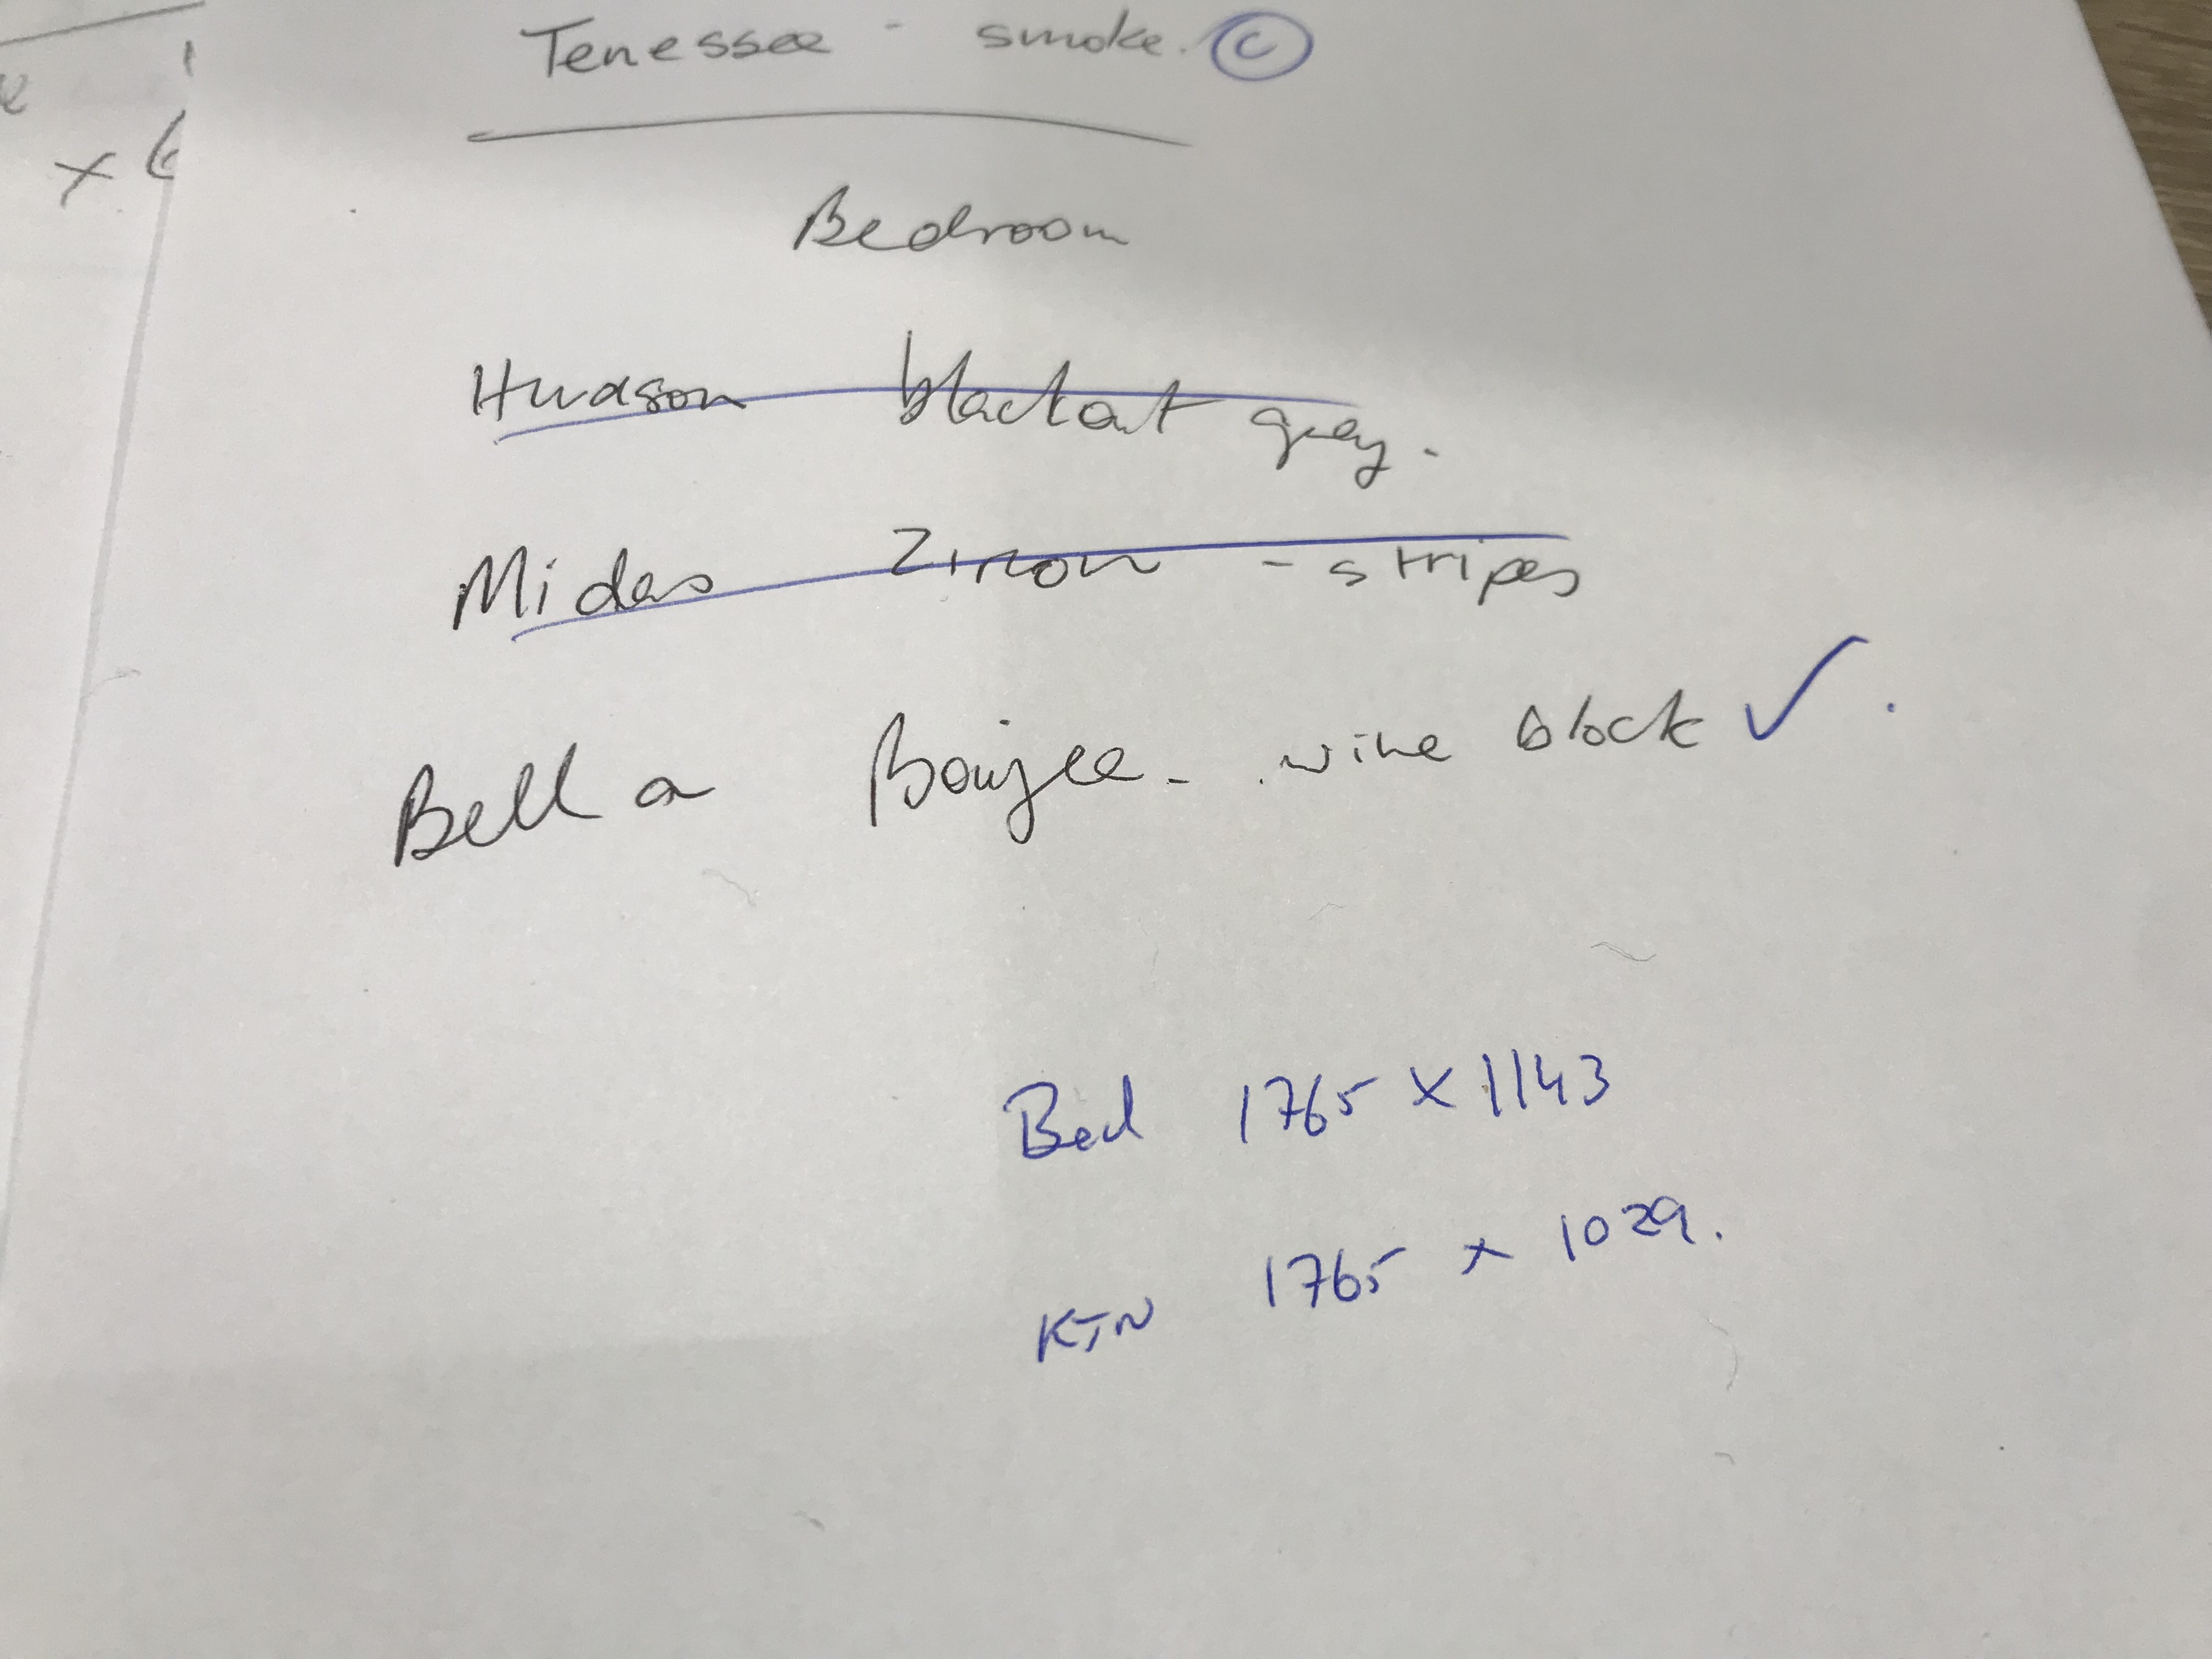 Tenessee - smoke. C
x 6
Bedroom
Hudson blackout grey.
Midas Zircon - stripes
Bella Boujee - wine block ✓.
Bed 1765 x 1143
KTN 1765 x 1029.